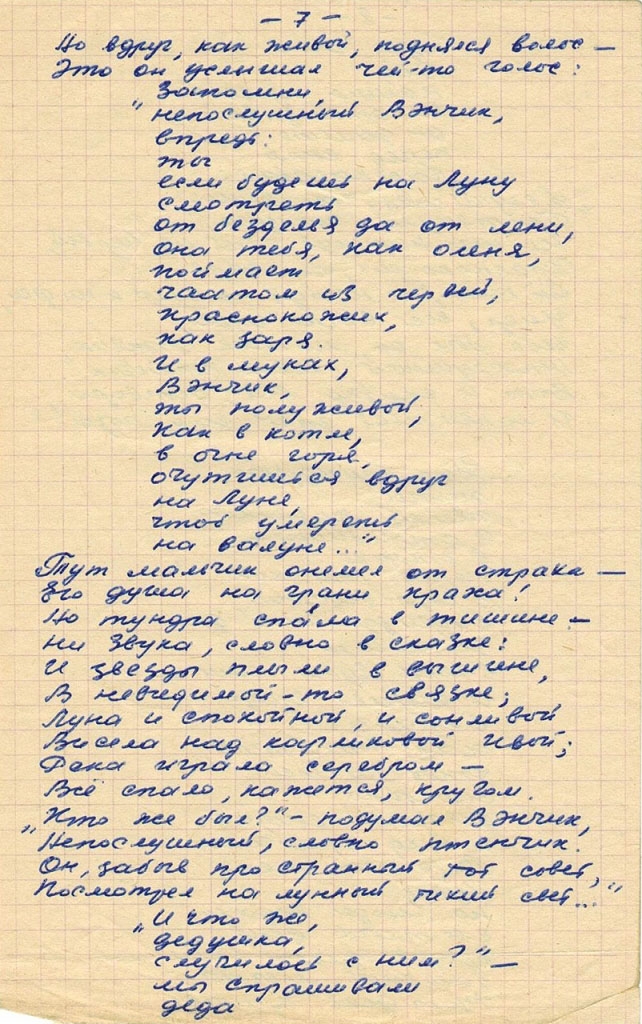 — 7 —
Но вдруг, как живой, поднялся волос —
Это он услышал чей-то голос:
Запомни,
„непослушный Вэнчик,
впредь:
ты
если будешь на Луну
смотреть
от безделья да от лени,
Она тебя, как оленя,
поймает
чаатом из червей,
краснокожих,
как заря.
И в муках,
Вэнчик,
ты полуживой,
Как в котле,
в огне горя,
очутишься вдруг
на Луне,
чтоб умереть
на валуне..."
Тут мальчик онемел от страха —
Его душа на грани краха!
Но тундра спала в тишине —
ни звука, словно в сказке:
И звезды плыли в вышине,
В невидимой-то связке;
Луна и спокойной, и сонливой
Висела над карликовой ивой;
Река играла серебром —
Всё спало, кажется, кругом.
„Кто же был?" – подумал Вэнчик,
Непослушный, словно птенчик.
Он, забыв про странный тот совет,
Посмотрел на лунный тихий свет..."
„И что же,
дедушка,
случилось с ним?" —
мы спрашивали
деда